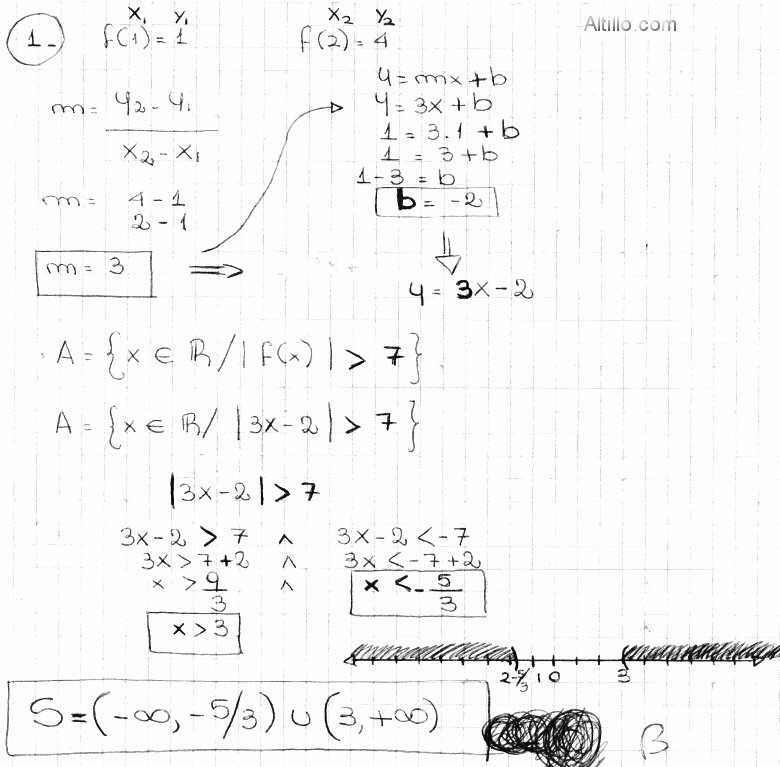 Altillo.com
1- x₁ y₁ x₂ y₂
f(1) = 1 f(2) = 4
m = y₂ - y₁ / x₂ - x₁
m = 4 - 1 / 2 - 1
m = 3 ⇒
y = mx + b
y = 3x + b
1 = 3.1 + b
1 = 3 + b
1 - 3 = b
b = -2
⇓
y = 3x - 2
A = {x ∈ ℝ / |f(x)| > 7}
A = {x ∈ ℝ / |3x - 2| > 7}
|3x - 2| > 7
3x - 2 > 7 ∧ 3x - 2 < -7
3x > 7 + 2 ∧ 3x < -7 + 2
x > 9/3 ∧ x < -5/3
x > 3
2 -5/3 1 0 3
S = (-∞, -5/3) ∪ (3, +∞)
B